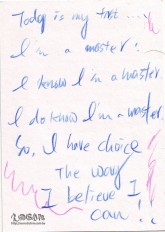 Today is my test ...
I'm a master!
I know I'm a master.
I do know I'm a master.
So, I have choice
The way
I believe I
can!!